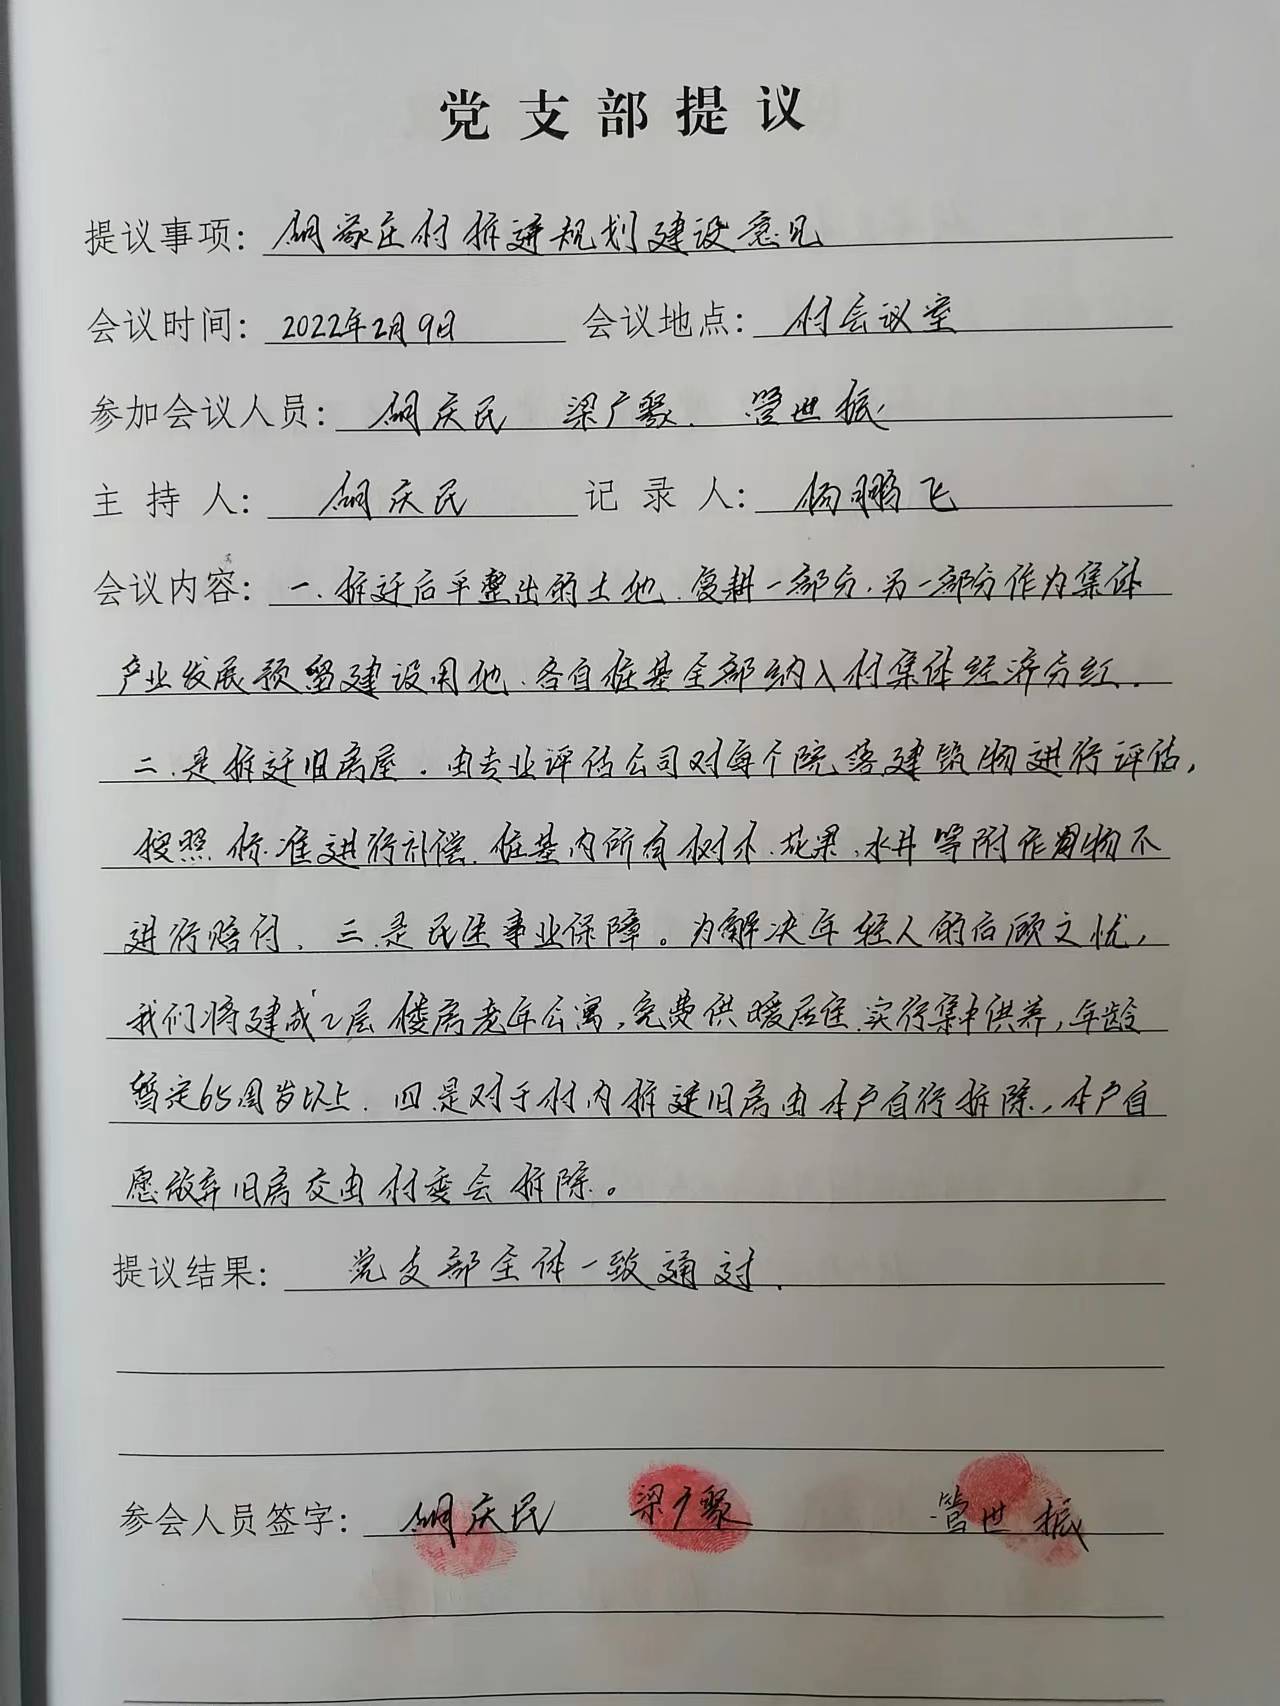 党支部提议
提议事项：胡家庄村拆建规划建设意见
会议时间：2022年2月9日 会议地点：村会议室
参加会议人员：胡庆民 梁广聚 管世振
主持人：胡庆民 记录人：杨鹏飞
会议内容：一、拆迁后平整出的土地、复耕一部分，另一部分作为集体
产业发展预留建设用地、各自庄基全部纳入村集体经济分红.
二、是拆迁旧房屋。由专业评估公司对每个院落建筑物进行评估，
按照标准进行补偿、庄基内所有树木、花果、水井等附作物不
进行赔付、三、是民生事业保障。为解决年轻人的后顾之忧，
我们将建成2层楼房老年公寓，免费供暖居住、实行集中供养，年龄
暂定65周岁以上、四、是对于村内拆建旧房由本户自行拆除，本户自
愿放弃旧房交由村委会拆除。
提议结果：党支部全体一致通过.
参会人员签字：胡庆民 梁广聚 管世振